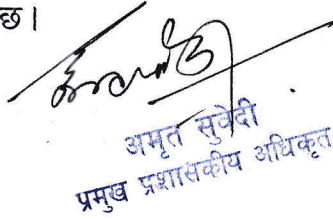 छ।
अमृत सुवेदी
प्रमुख प्रशासकीय अधिकृत